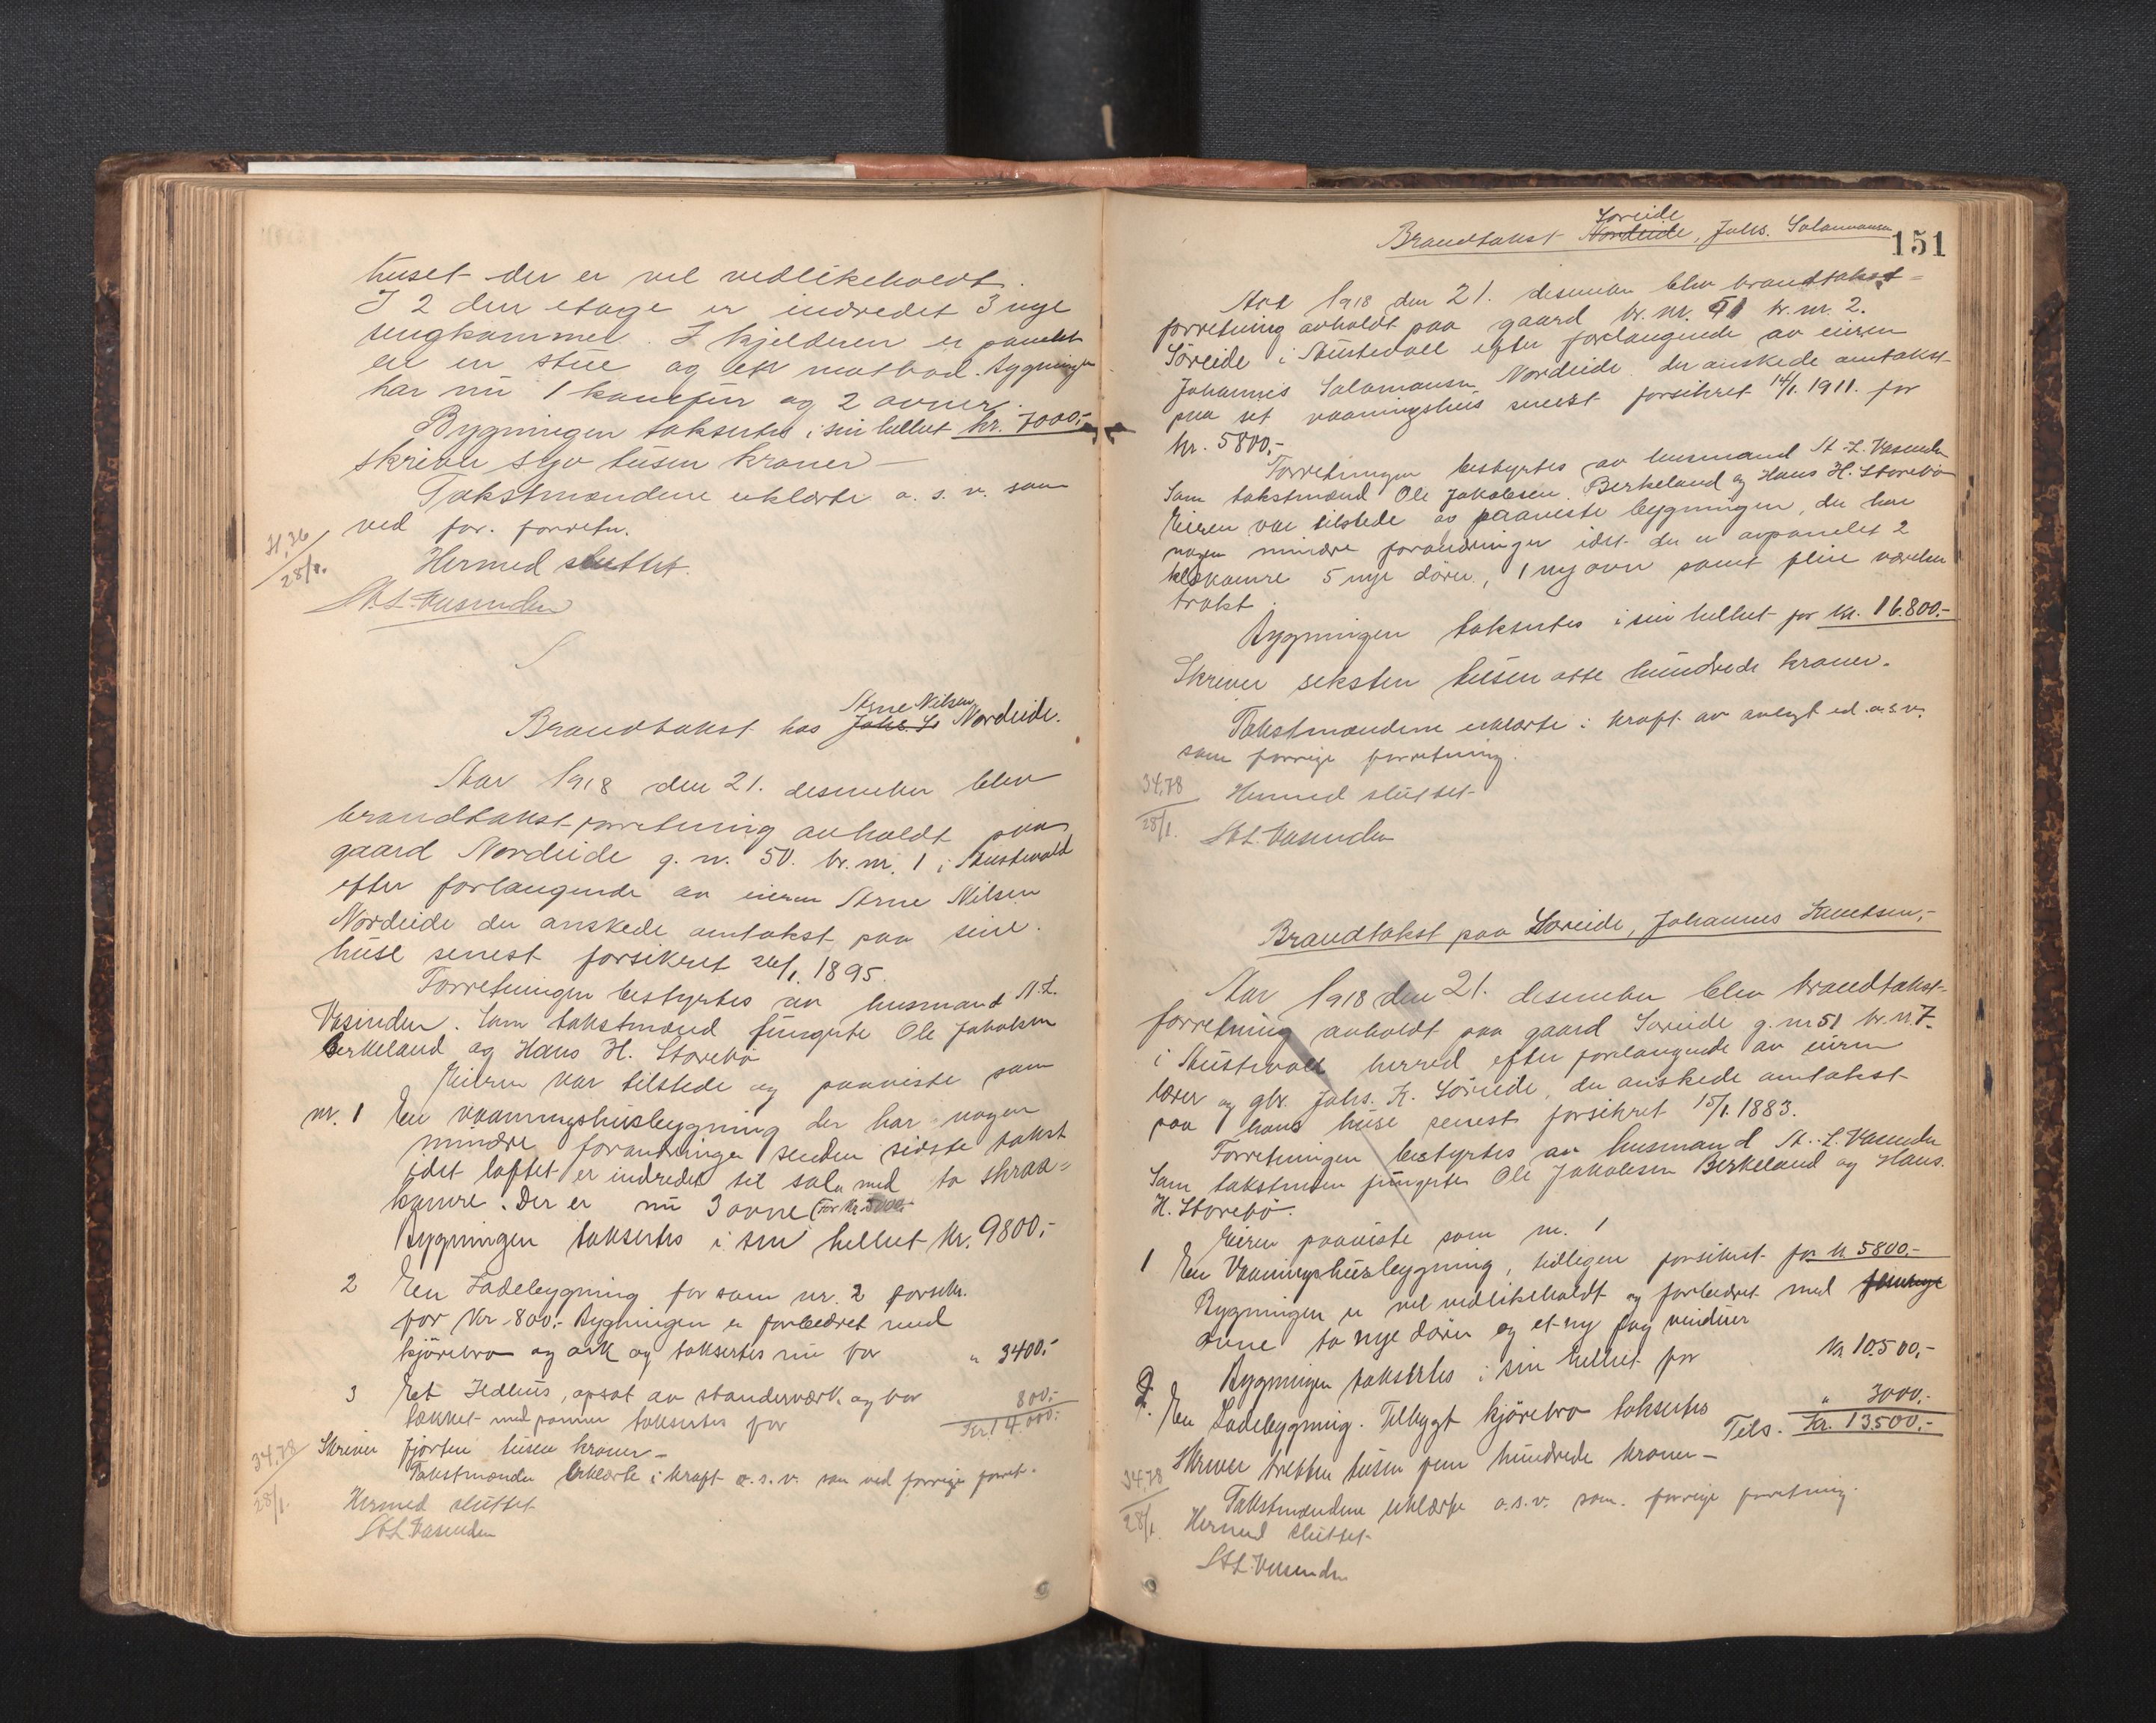 huset der er vel vedlikeholdt.
I 2 den etage er indredet 3 nye
sengkammer. I kjelderen er panelet
en stue og ett matbod. Bygningen
har nu 1 komfur og 2 ovner.
Bygningen taksertes i sin helhet kr. 7000,-
skriver syv tusen kroner —
Takstmændene erklærte o. s. v. som
ved for. forretn.
Hermed sluttet.
28/1.
St. L. Vasenden
Arne Nilsen
Brandtakst hos Johs. S. Nordeide.
Aar 1918 den 21. desember blev
brandtakst forretning avholdt paa
gaard Nordeide g. nr. 50. br. nr. 1 i Austevold
efter forlangende av eieren Arne Nilsen
Nordeide der ønskede omtakst paa sine
huse senest forsikret 26/1. 1895.
Forretningen bestyrtes av lensmand St. L.
Vasenden. Som takstmænd fungerte Ole Jakobsen
Berkeland og Hans H. Storebø
Eieren var tilstede og paaviste som
nr. 1 En vaaningshusbygning der har nogen
mindre forandringer senden sidste takst
idet loftet er indredet til sale med to skraa-
kamre. Der er nu 3 ovne (For kr. 5000.-
Bygningen taksertes i sin helhet kr. 9800,-
2 En Ladebygning før som nr. 2 forsikr.
for kr. 800.- Bygningen er forbedret med
kjørebro og ark og taksertes nu for " 3400.-
3 Et Ildhus, opsat av standerværk og bor
tækket med panner taksertes for 800.-
Kr. 14.000.-
Skriver fjorten tusen kroner —
Takstmænden erklærte i kraft o. s. v. som ved forrige forret.
34,78
28/1.
Hermed sluttet
St L Vasenden
Soreide
Brandtakst Nordeide, Johs. Salamonsen
151
Aar 1918 den 21. desember blev brandtakst-
forretning avholdt paa gaard br. nr. 51 br. nr. 2.
Söreide i Austevoll efter forlangende av eieren
Johannes Salamonsen Nordeide der ønskede omtakst
paa set vaaningshus senest forsikret 14/1. 1911. for
kr. 5800,-
Forretningen bestyrtes av lensmand St. L. Vasenden
Som takstmænd Ole Jakobsen Berkeland og Hans H. Storebø
Eieren var tilstede og paaviste bygningen, der har
nogen mindre forandringer idet der er avpanelet 2
kleskamre 5 nye döre, 1 ny ovn samt flere værelser
trakt.
Bygningen taksertes i sin helhet for kr. 16.800.-
Skriver seksten tusen otte hundrede kroner.
Takstmændene erklærte i kraft av avlagt ed o.s.v.
som forrige forretning.
34,78
28/1.
Hermed sluttet
St L. Vasenden
Brandtakst paa Soreide, Johannes Knutsen,-
Aar 1918 den 21. desember blev brandtakst-
forretning avholdt paa gaard Soreide g. nr 51 br. nr. 7.
i Austevoll herred efter forlangende av eieren
lærer og gbr. Johs. K. Söreide, der ønskede omtakst
paa hans huse senest forsikret 15/1. 1883.
Forretningen bestyrtes av lensmand St. L. Vasenden
Som takstmen fungerte Ole Jakobsen Berkeland og Hans
H. Storebø.
Eieren paaviste som nr. 1
1 En Vaaningshusbygning, tidligere forsikret for kr 5800.-
Bygningen er vel vedlikeholdt og forbedret med
ovne to nye dører og et ny fag vinduer
Bygningen taksertes i sin helhet for kr 10.500,-
2. En Ladebygning. Tilbygt kjörebro taksertes " 3000.-
Tils. Kr. 13.500.-
Skriver tretten tusen fem hundrede kroner —
Takstmændene erklærte o.s.v. som forrige forretning.
34,78
28/1.
Hermed sluttet
St L. Vasenden